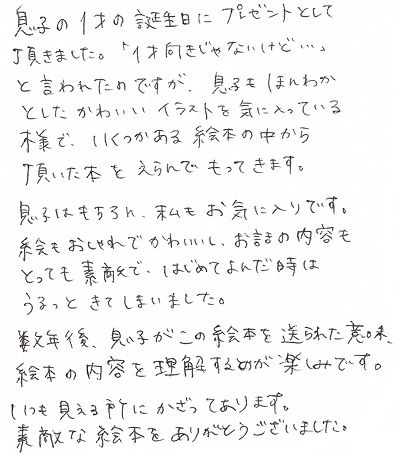 息子の1才の誕生日に プレゼントとして
頂きました。「1才向きじゃないけど…」
と言われたのですが、息子も ほんわか
とした かわいい イラストを 気に入っている
様で、いくつかある 絵本の中から
頂いた本を えらんで もってきます。
息子はもちろん、私も お気に入りです。
絵もおしゃれで かわいいし、お話の内容も
とっても 素敵で、はじめて よんだ時は
うるっと きてしまいました。
数年後、息子がこの絵本を 送られた意味、
絵本の内容を 理解するのが 楽しみです。
いつも見える所に かざってあります。
素敵な絵本を ありがとうございました。